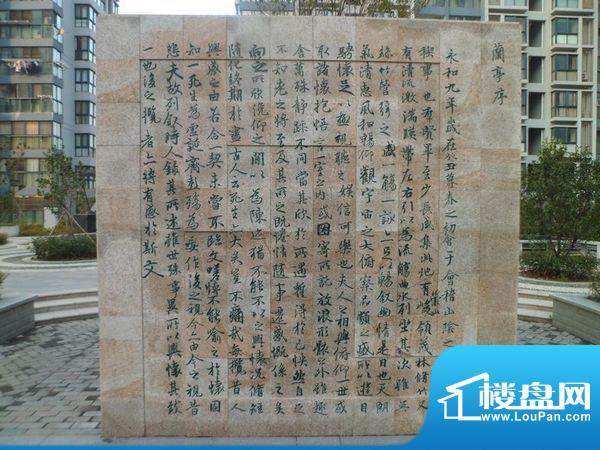 蘭亭序
永和九年歲在癸丑暮春之初會于會稽山陰之
稧事也群賢畢至少長咸集此地有峻領茂林脩竹又
有清流激湍暎帶左右引以為流觴曲水列坐其次雖無
絲竹管弦之盛一觴一詠亦足以暢敘幽情是日也天朗
氣清惠風和暢仰觀宇宙之大俯察品類之盛所以遊目
騁懷足以極視聽之娛信可樂也夫人之相與俯仰一世或
取諸懷抱悟言一室之內或因寄所託放浪形骸之外雖趣
舍萬殊靜躁不同當其欣於所遇暫得於己快然自足
不知老之將至及其所之既惓情隨事遷感慨係之矣
向之所欣俛仰之間以為陳迹猶不能不以之興懷況脩短
隨化終期於盡古人云死生亦大矣豈不痛哉每攬昔人
興感之由若合一契未嘗不臨文嗟悼不能喻之於懷固
知一死生為虛誕齊彭殤為妄作後之視今亦由今之視昔
悲夫故列敘時人錄其所述雖世殊事異所以興懷其致
一也後之攬者亦將有感於斯文
楼盘网
www.LouPan.com